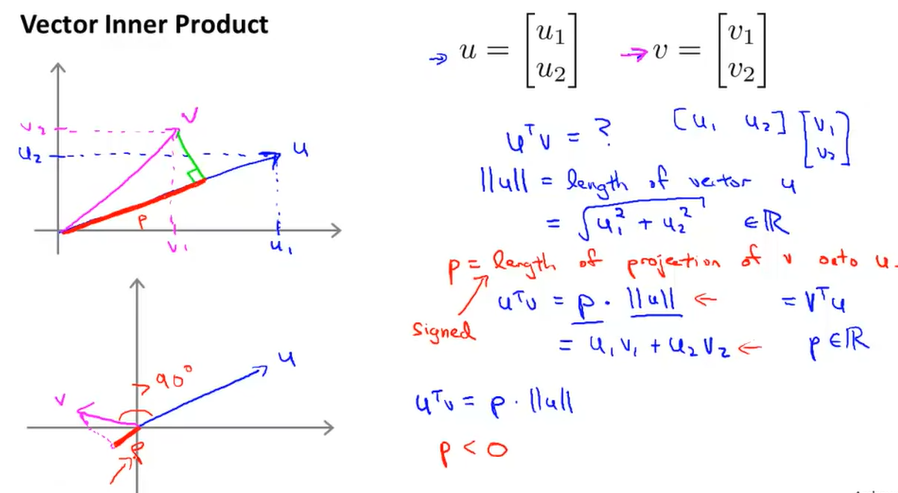 Vector Inner Product
→ u = [u₁ u₂] → v = [v₁ v₂]
uᵀv = ? [u₁ u₂] [v₁ v₂]
||u|| = length of vector u
= √u₁² + u₂² ∈ ℝ
p = length of projection of v onto u.
signed
uᵀv = p · ||u|| ← = vᵀu
= u₁v₁ + u₂v₂ ← p ∈ ℝ
uᵀv = p · ||u||
p < 0
v₂
u₂
v
u
p
v₁
u₁
> 90°
u
v
p